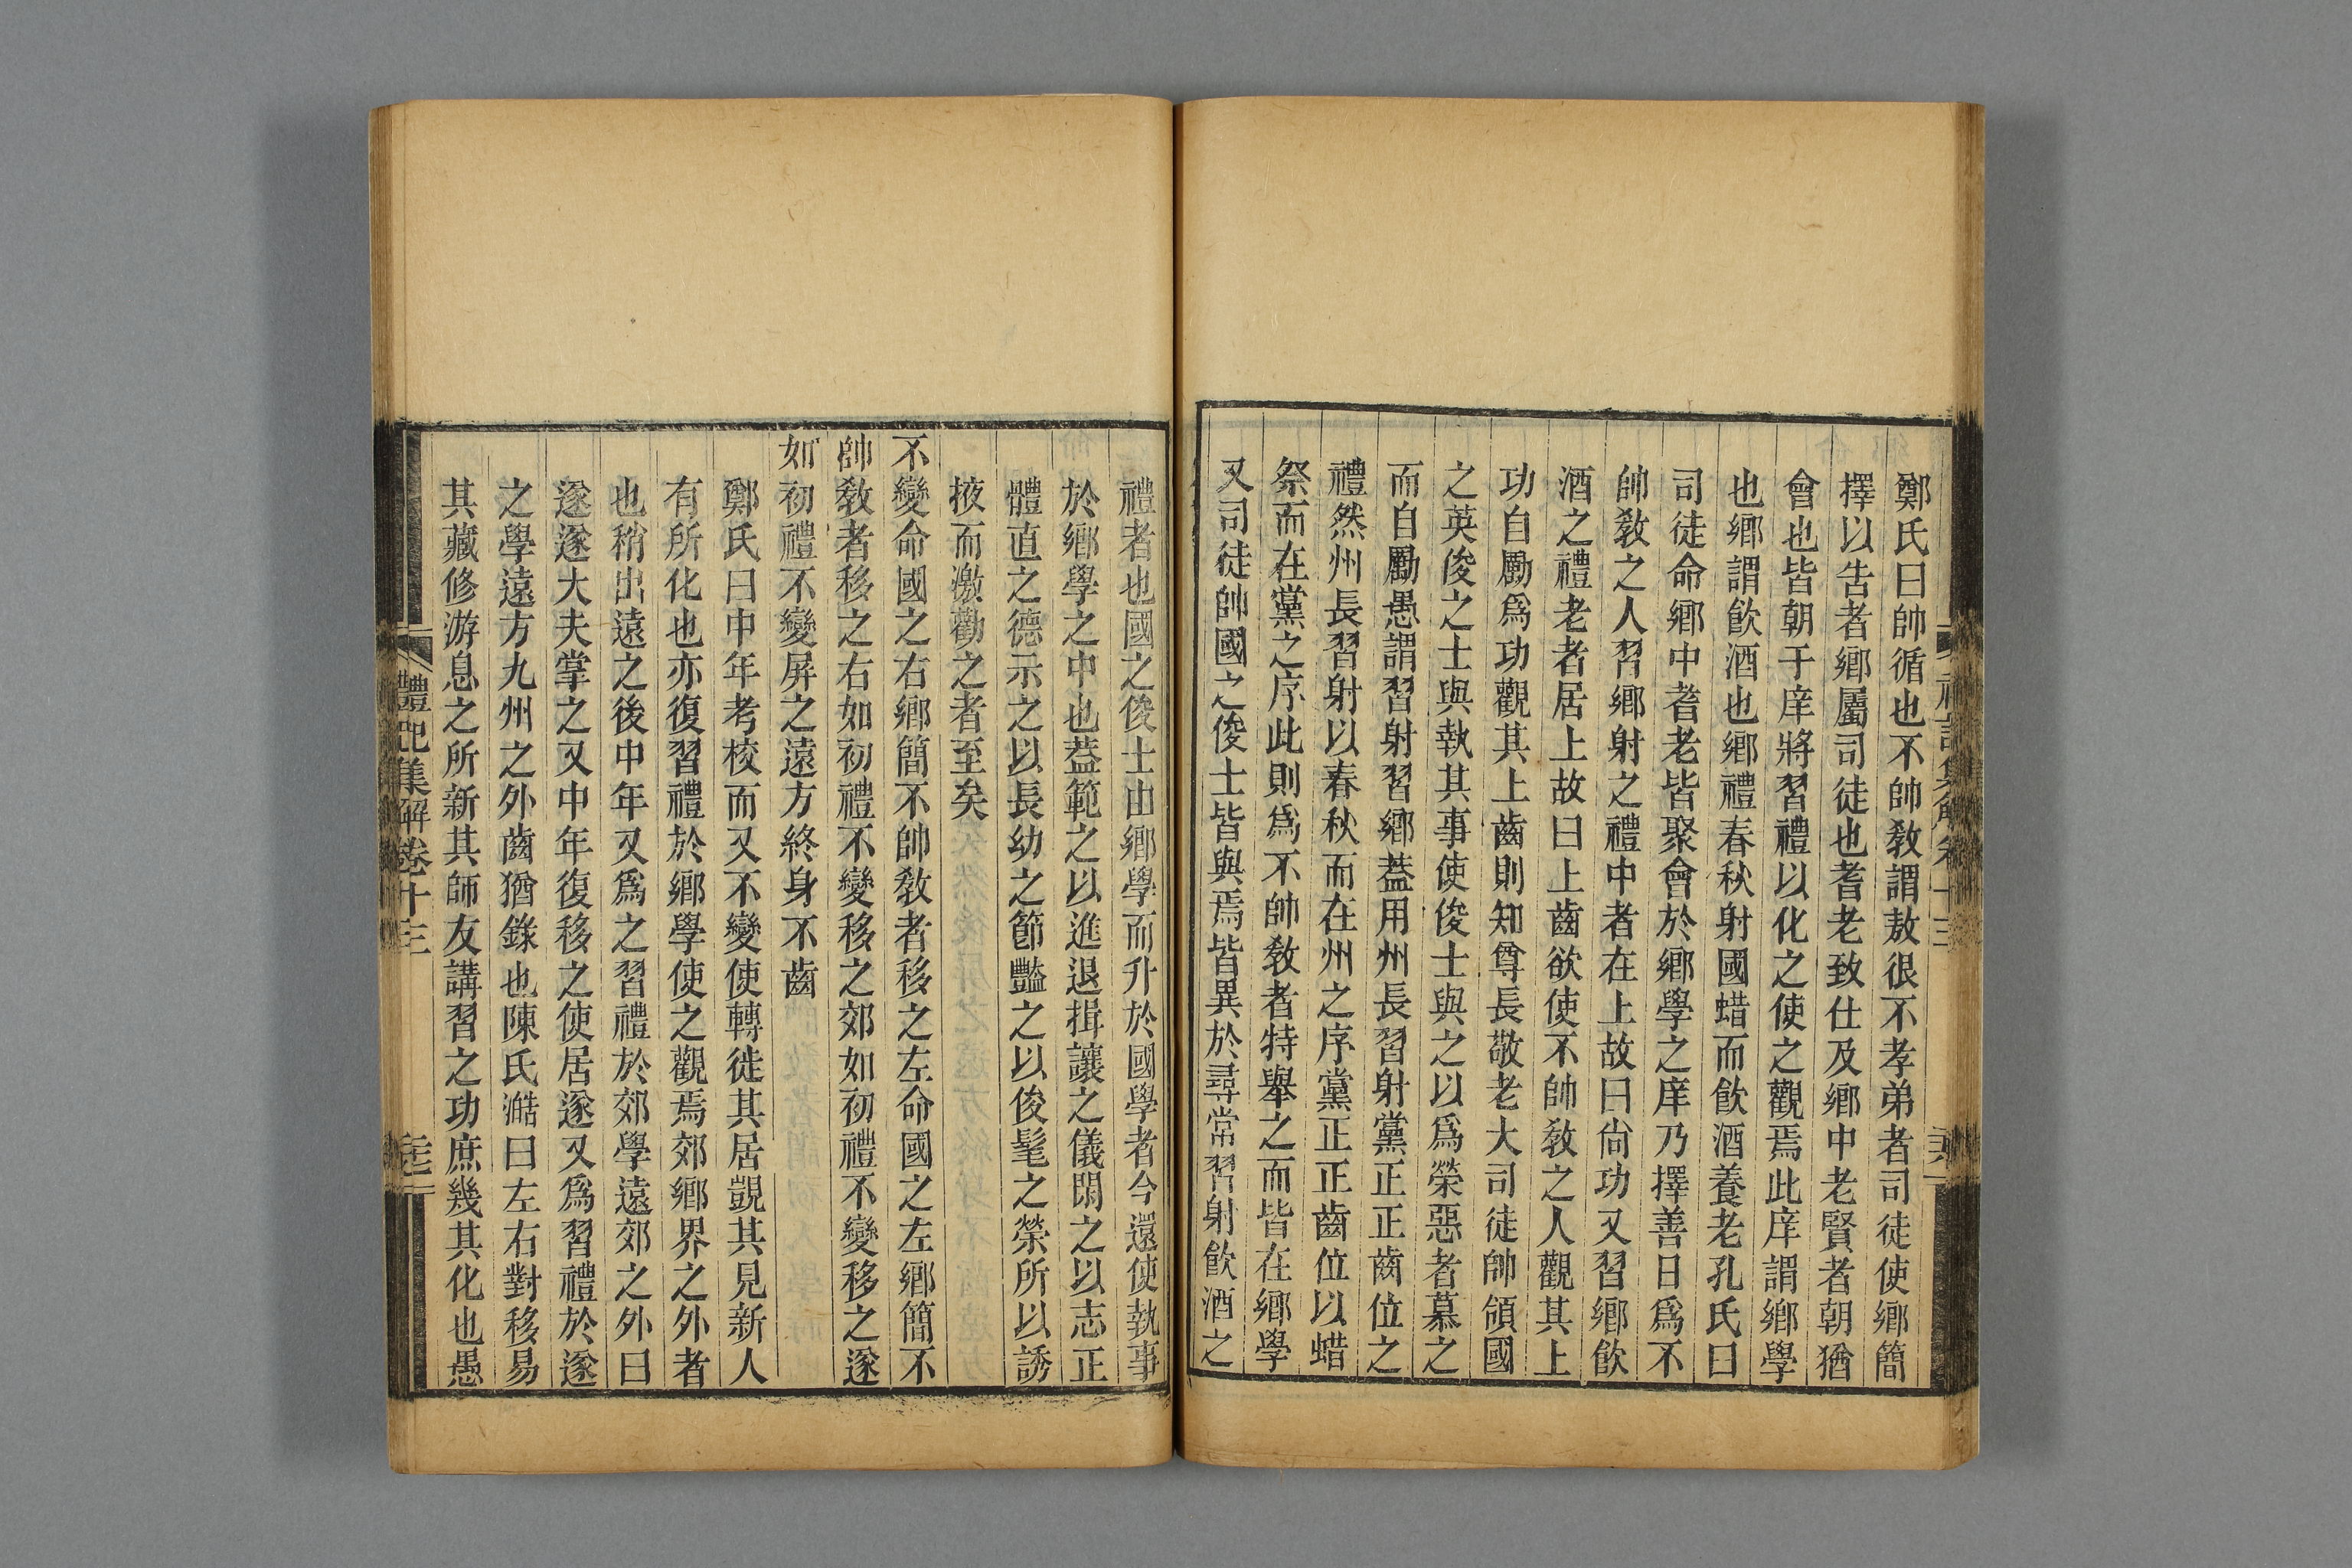 鄭氏曰帥循也不帥敎謂敖很不孝弟者司徒使鄕簡
擇以告者鄕屬司徒也耆老致仕及鄕中老賢者朝猶
會也皆朝于庠將習禮以化之使之觀焉此庠謂鄕學
也鄕謂飮酒也鄕禮春秋射國蜡而飮酒養老孔氏曰
司徒命鄕中耆老皆聚會於鄕學之庠乃擇善日爲不
帥敎之人習鄕射之禮中者在上故曰尙功又習鄕飮
酒之禮老者居上故曰上齒欲使不帥敎之人觀其上
功自勵爲功觀其上齒則知尊長敬老大司徒帥領國
之英俊之士與執其事使俊士與之以爲榮惡者慕之
而自勵愚謂習射習鄕蓋用州長習射黨正正齒位之
禮然州長習射以春秋而在州之序黨正正齒位以蜡
祭而在黨之序此則爲不帥敎者特舉之而皆在鄕學
又司徒帥國之俊士皆與焉皆異於尋常習射飮酒之
禮者也國之俊士由鄕學而升於國學者今還使執事
於鄕學之中也蓋範之以進退揖讓之儀閑之以志正
體直之德示之以長幼之節豔之以俊髦之榮所以誘
掖而激勸之者至矣
不變命國之右鄕簡不帥敎者移之左命國之左鄕簡不
帥敎者移之右如初禮不變移之郊如初禮不變移之遂
如初禮不變屛之遠方終身不齒
鄭氏曰中年考校而又不變使轉徙其居覬其見新人
有所化也亦復習禮於鄕學使之觀焉郊鄕界之外者
也稍出遠之後中年又爲之習禮於郊學遠郊之外曰
遂遂大夫掌之又中年復移之使居遂又爲習禮於遂
之學遠方九州之外齒猶錄也陳氏澔曰左右對移易
其藏修游息之所新其師友講習之功庶幾其化也愚
禮記集解卷十三